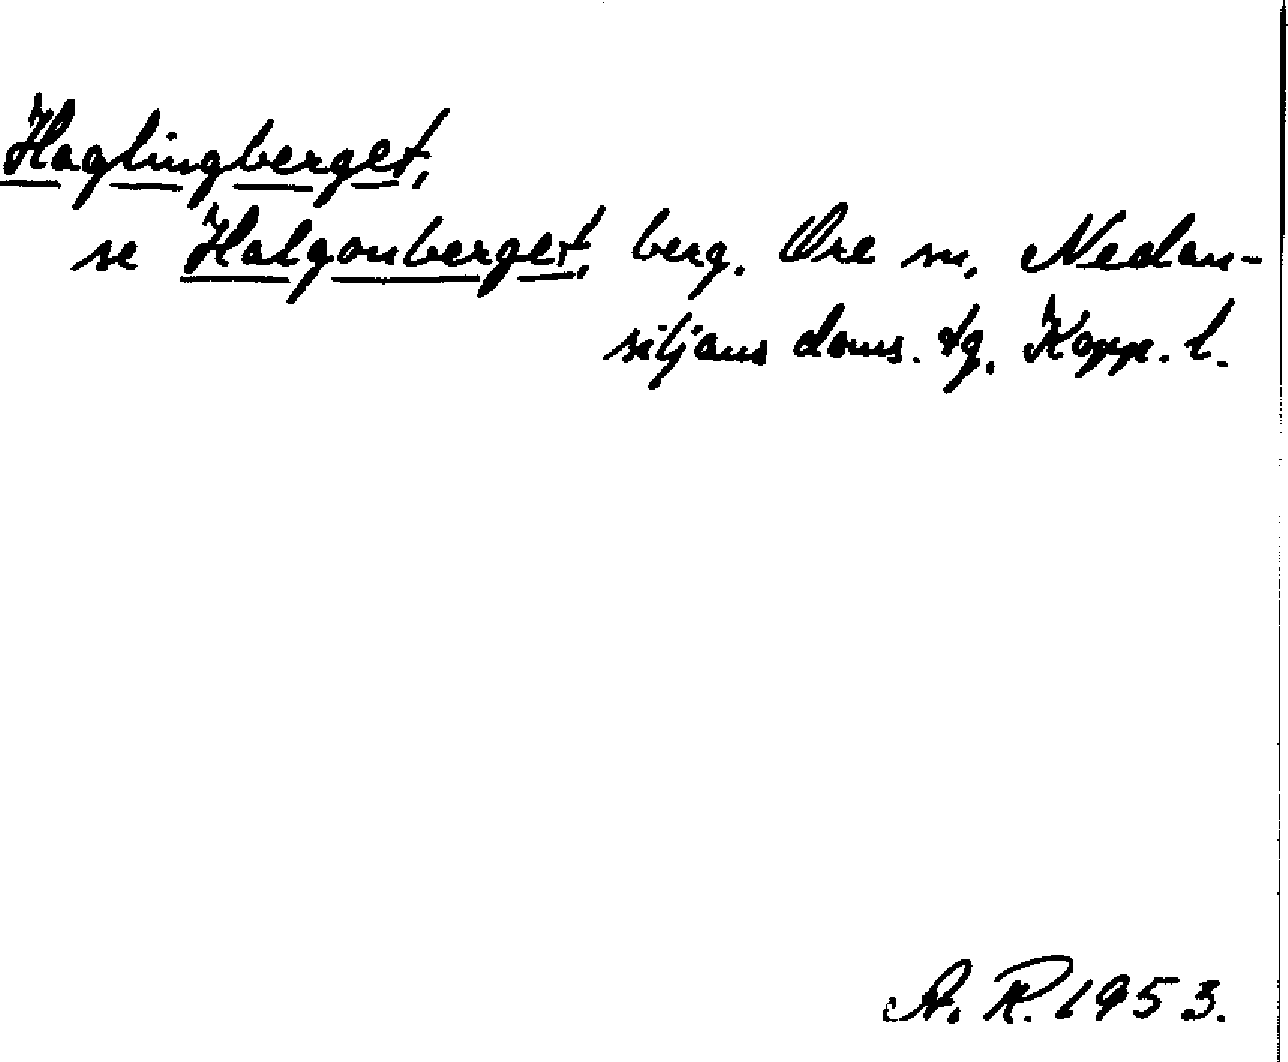 Haglingberget,
se Halgonberget, berg. Ore sn, Nedan-
siljans doms. tg. Kopp. l.
A. R. 1953.